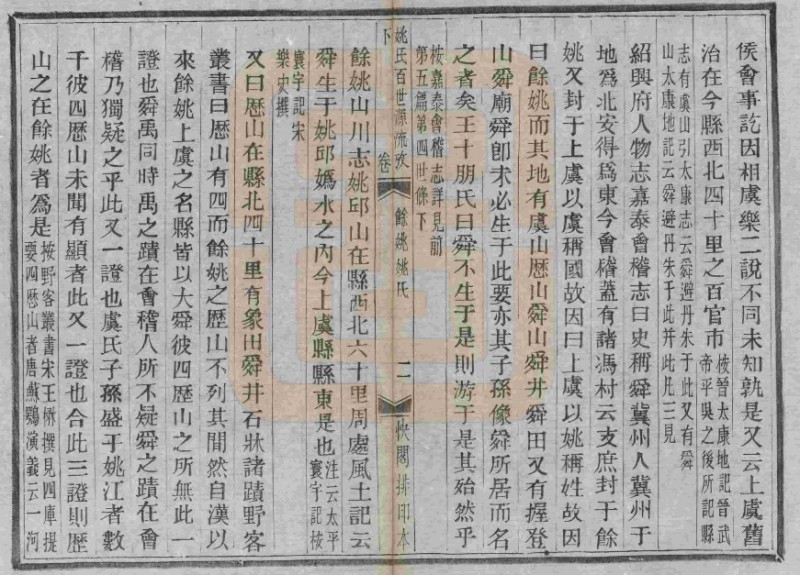 侯會事訖因相虞樂二說不同未知孰是又云上虞舊
治在今縣西北四十里之百官市按晉太康地記晉武
帝平吳之後所記縣
志有虞山引太康志云舜避丹朱于此又有舜
山太康地記云舜避丹朱于此并此凡三見
紹興府人物志嘉泰會稽志曰史稱舜冀州人冀州于
地爲北安得爲東今會稽蓋有諸馮村云支庶封于餘
姚又封于上虞以虞稱國故因曰上虞以姚稱姓故因
曰餘姚而其地有虞山歷山舜山舜井舜田又有握登
山舜廟舜卽未必生于此要亦其子孫像舜所居而名
之者矣王十朋氏曰舜不生于是則游于是其殆然乎
按嘉泰會稽志詳見前
第五篇第四世條下
姚氏百世源流攷 卷下 餘姚姚氏 二 快閣排印本
餘姚山川志姚邱山在縣西北六十里周處風土記云
舜生于姚邱嬀水之內今上虞縣縣東是也注云太平
寰宇記按
寰宇記宋
樂史撰
又曰歷山在縣北四十里有象田舜井石牀諸蹟野客
叢書曰歷山有四而餘姚之歷山不列其間然自漢以
來餘姚上虞之名縣皆以大舜彼四歷山之所無此一
證也舜禹同時禹之蹟在會稽人所不疑舜之蹟在會
稽乃獨疑之乎此又一證也虞氏子孫盛于姚江者數
千彼四歷山未聞有顯者此又一證也合此三證則歷
山之在餘姚者爲是按野客叢書宋王楙撰見四庫提
要四歷山者唐蘇鶚演義云一河